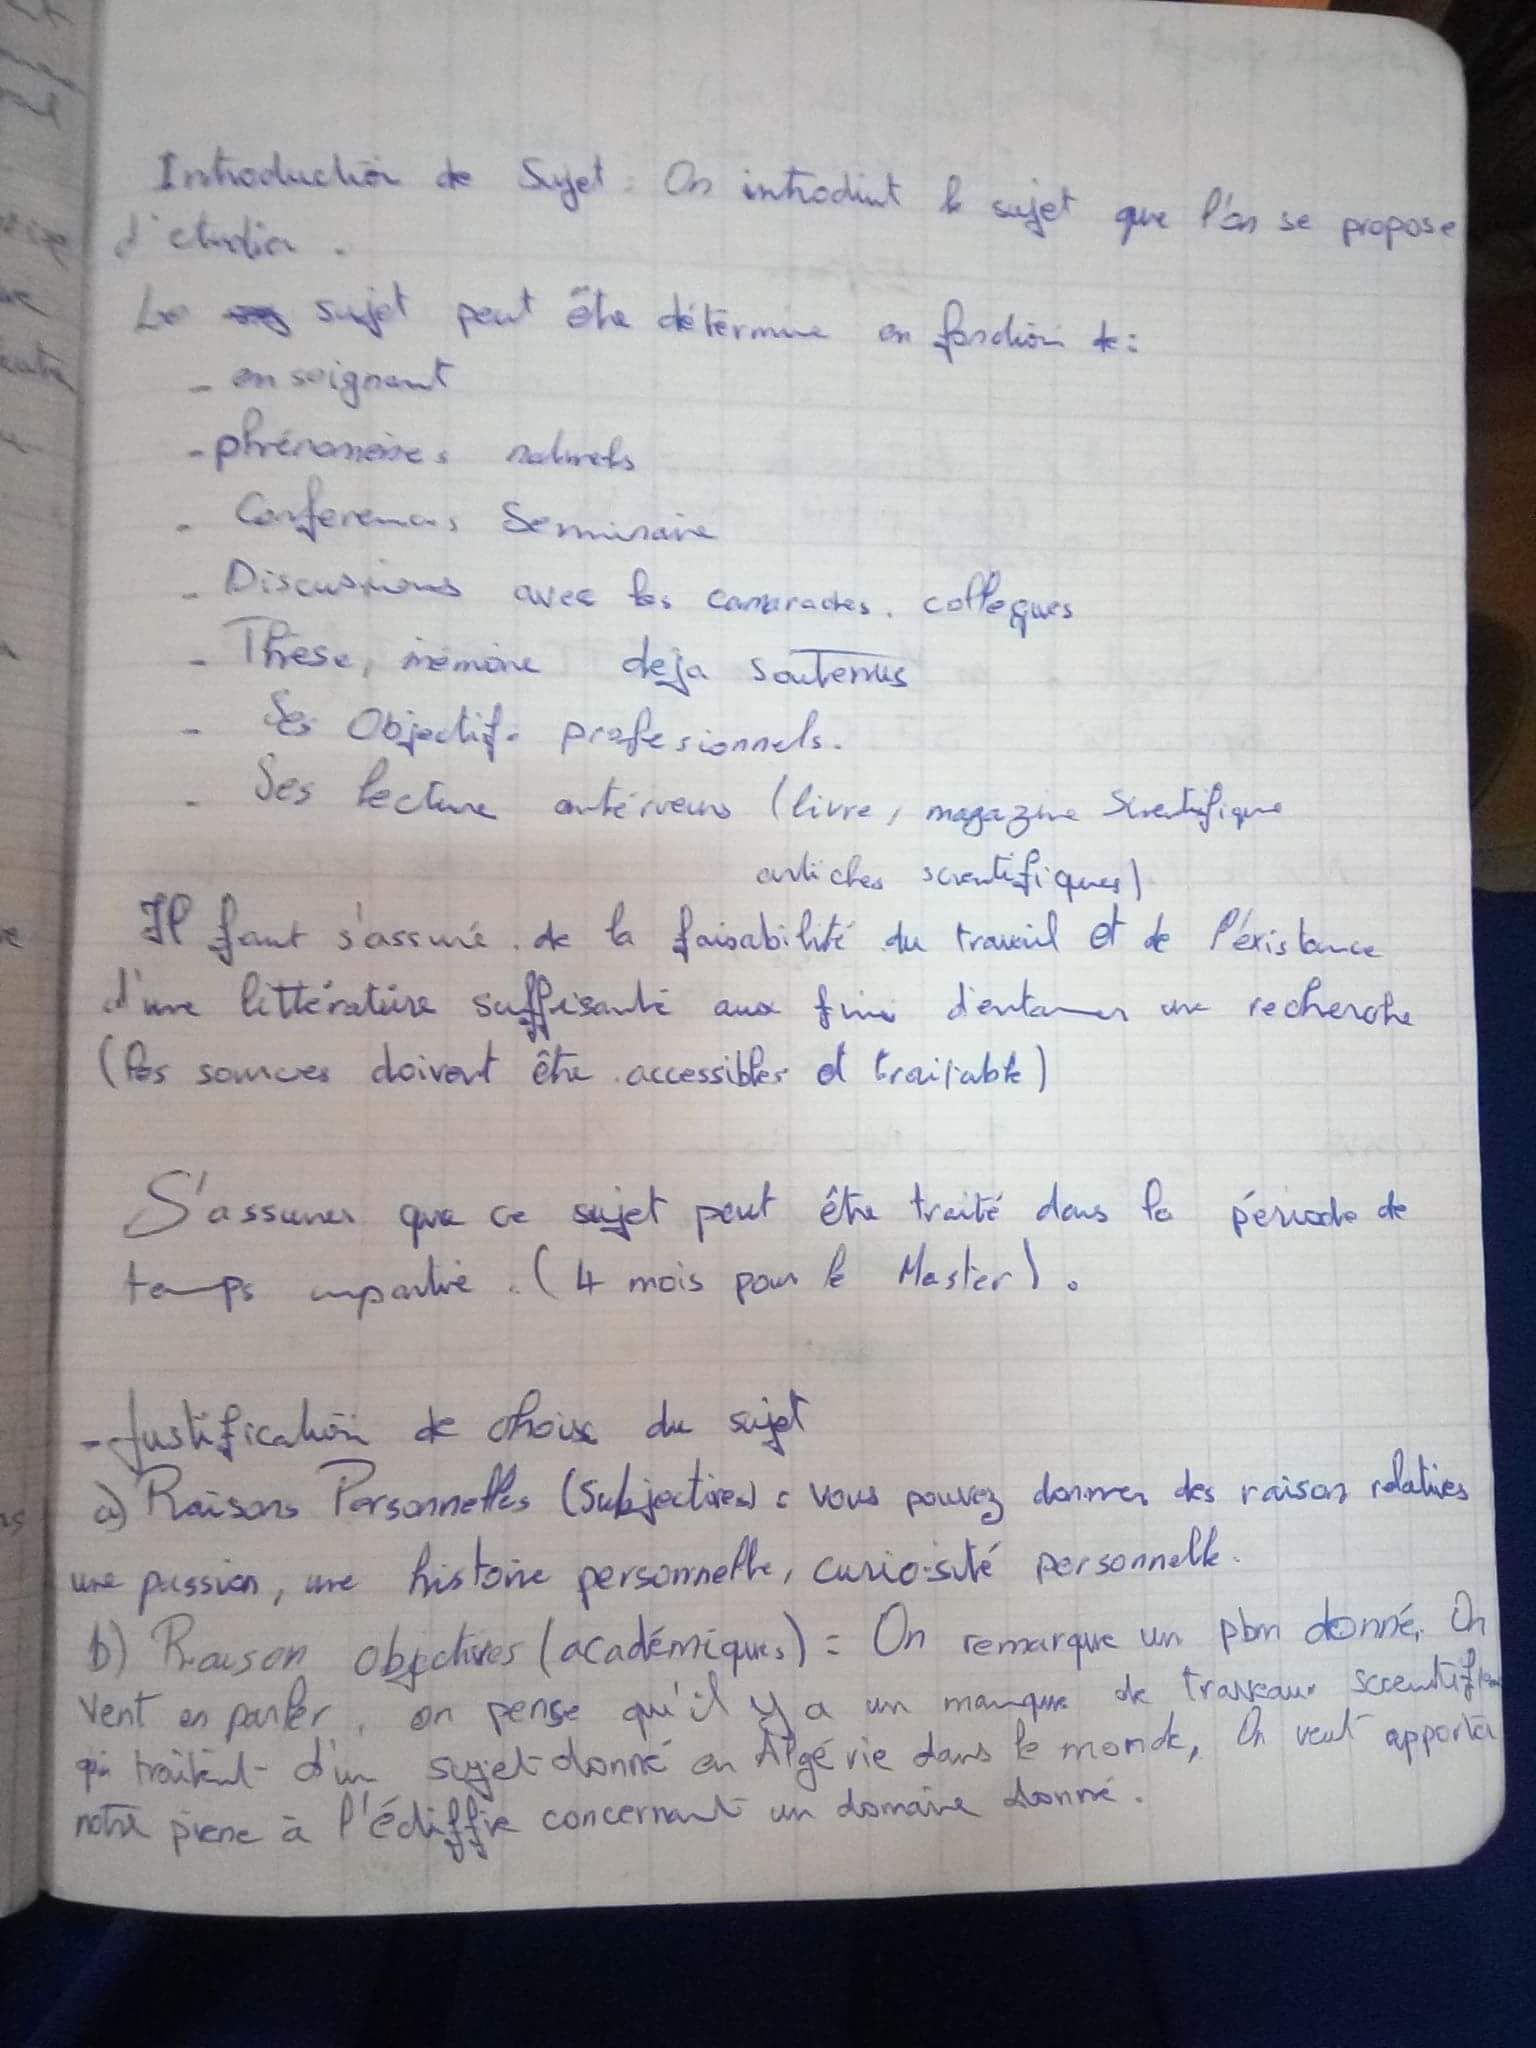 Introduction de Sujet : On introduit le sujet que l'on se propose
d'etudier.
Le sujet peut être détermine en fonction de :
- enseignant
- phénomènes naturels
- Conferences, Seminaire
- Discussions avec les camarades, collegues
- Thèse, mémoire deja soutenus
- Ses Objectifs profesionnels.
- Ses lecture antérieurs (livre, magazine Scientifique
articles scientifiques)
Il faut s'assuré de la faisabilité du travail et de l'éxistance
d'une littérature suffisante aux fins d'entamer une recherche
(les sources doivent être accessibles et traitable)
S'assurer que ce sujet peut être traité dans la période de
temps impartie. (4 mois pour le Master).
- Justification de choix du sujet
a) Raisons Personnelles (Subjectives) : vous pouvez donner des raison relatives
une passion, une histoire personnelle, curiosité personnelle.
b) Raison objectives (académiques) = On remarque un pbm donné, On
vent en parler, on pense qu'il y a un manque de travaux
qui traitent d'un sujet donné en Algérie dans le monde, On veut apporter
notre pierre à l'édiffie concernant un domaine donné.